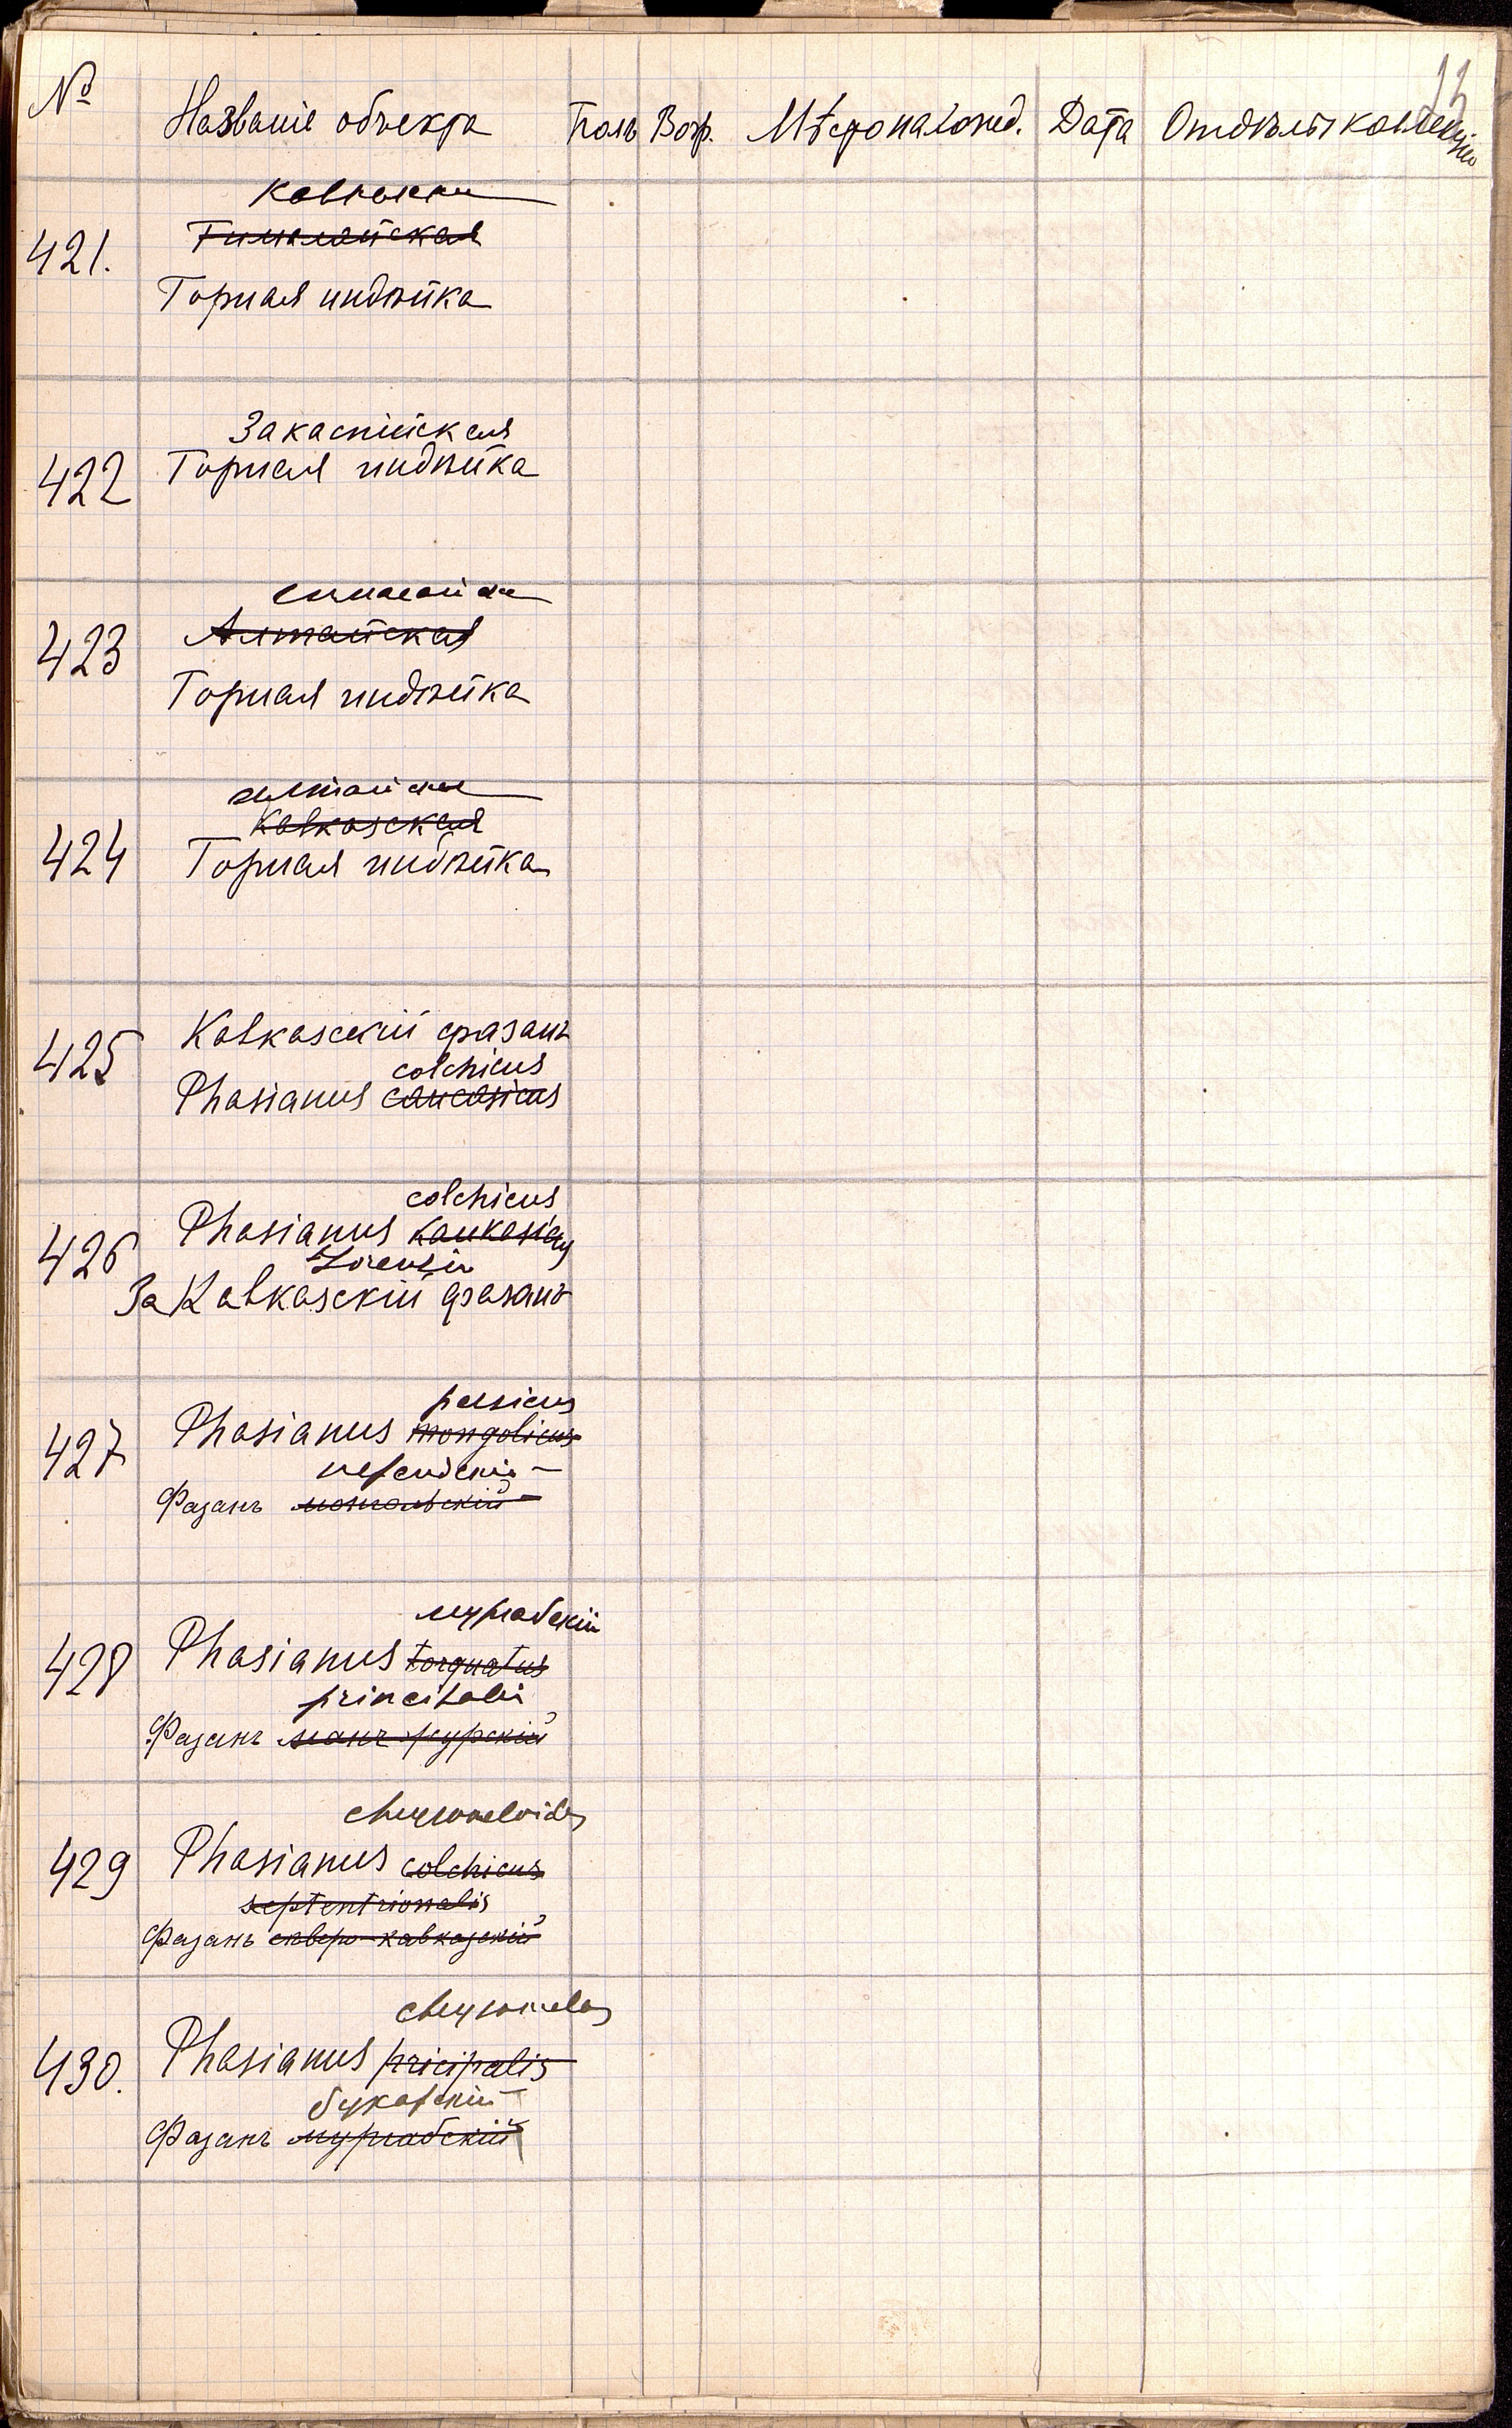 13
№ Названіе объекта Полъ Возр. Мѣстонахожд. Дата Отдѣлъ коллекціи
421.
Гималайская
Горная индѣйка
Закаспійская
422 Горная индѣйка
423 Алтайская
Горная индѣйка
алтайская
Кавказская
424 Горная индѣйка
425 Кавказскій фазанъ
colchicus
Phasianus caucasicus
colchicus
426 Phasianus
Lorenzi
За Кавказскій фазанъ
persicus
427 Phasianus mongolicus
персидскій
Фазанъ монгольскій
мургабскій
428 Phasianus torquatus
principalis
Фазанъ манчжурскій
chrysomeloides
429 Phasianus colchicus
septentrionalis
Фазанъ сѣверо-кавказскій
chrysomelas
430. Phasianus pricipalis
Фазанъ мургабскій